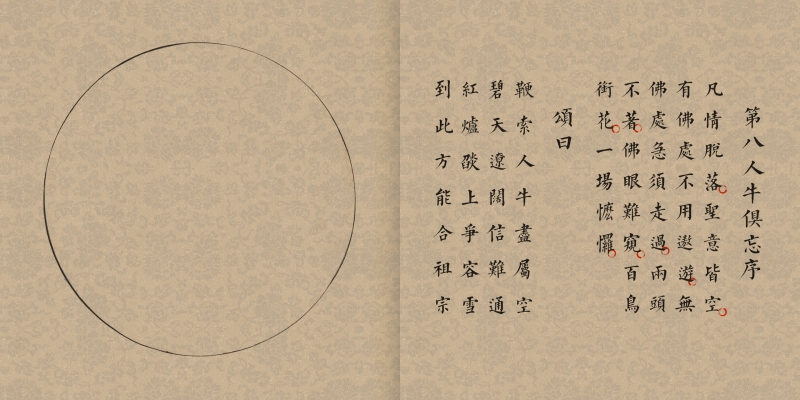 第八人牛俱忘序
凡情脫落聖意皆空
有佛處不用遨遊無
佛處急須走過兩頭
不著佛眼難窺百鳥
銜花一場懡㦬
頌曰
鞭索人牛盡屬空
碧天遼闊信難通
紅爐燄上爭容雪
到此方能合祖宗